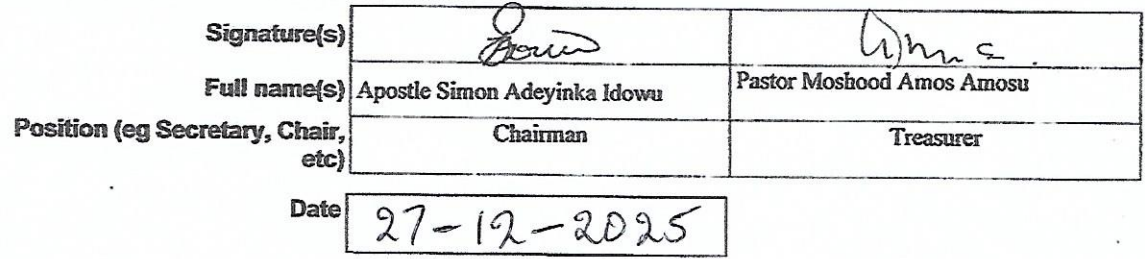 Signature(s)
Full name(s) Apostle Simon Adeyinka Idowu Pastor Moshood Amos Amosu
Position (eg Secretary, Chair, Chairman Treasurer
etc)
Date 27-12-2025